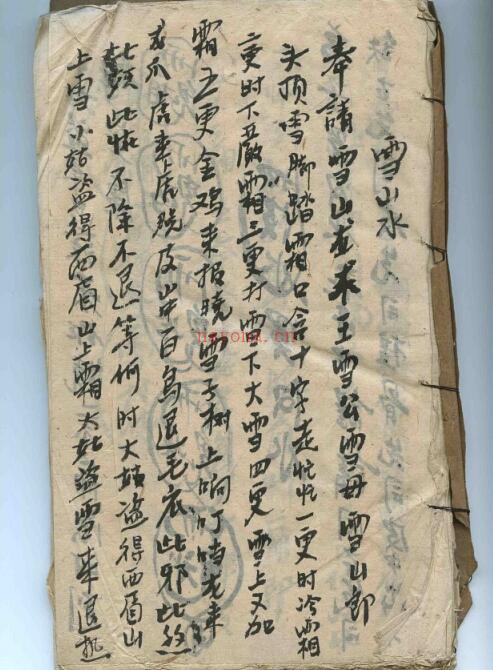 雪山水
奉請雪山龙来王雪公雪母雪山郎
头顶雪脚踏霜口含十字走忙忙一更时冷霜
二更时下严霜三更打雪下大雪四更雪上又加
霜五更金鸡来报晓雪子树上响叮当龙来
龙爪虎来虎脱皮山中百鸟退毛衣此邪此煞
此怪不除不退等何时大姑盗得西眉山
上雪小姑盗得西眉山上霜大姑盗雪来退热